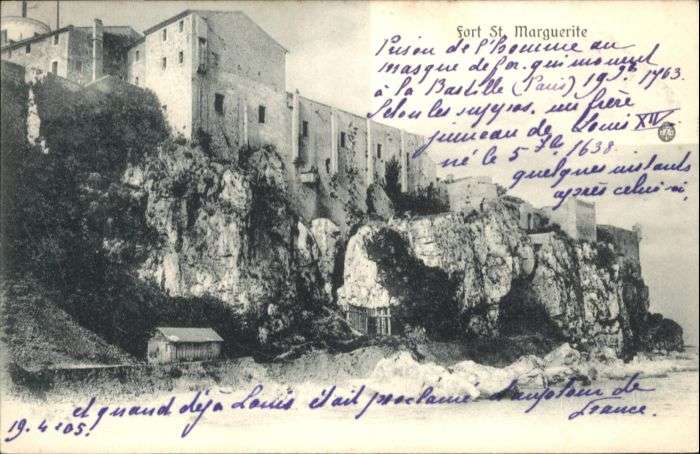 Fort St. Marguerite
Prison de l'homme au
masque de fer qui mourut
à la Bastille (Paris) 1703.
Selon les un frère
jumeau de Louis XIV
né le 5 7bre 1638
quelques instants
après celui-ci
et quand déjà Louis était proclamé
France.
19.4.05.